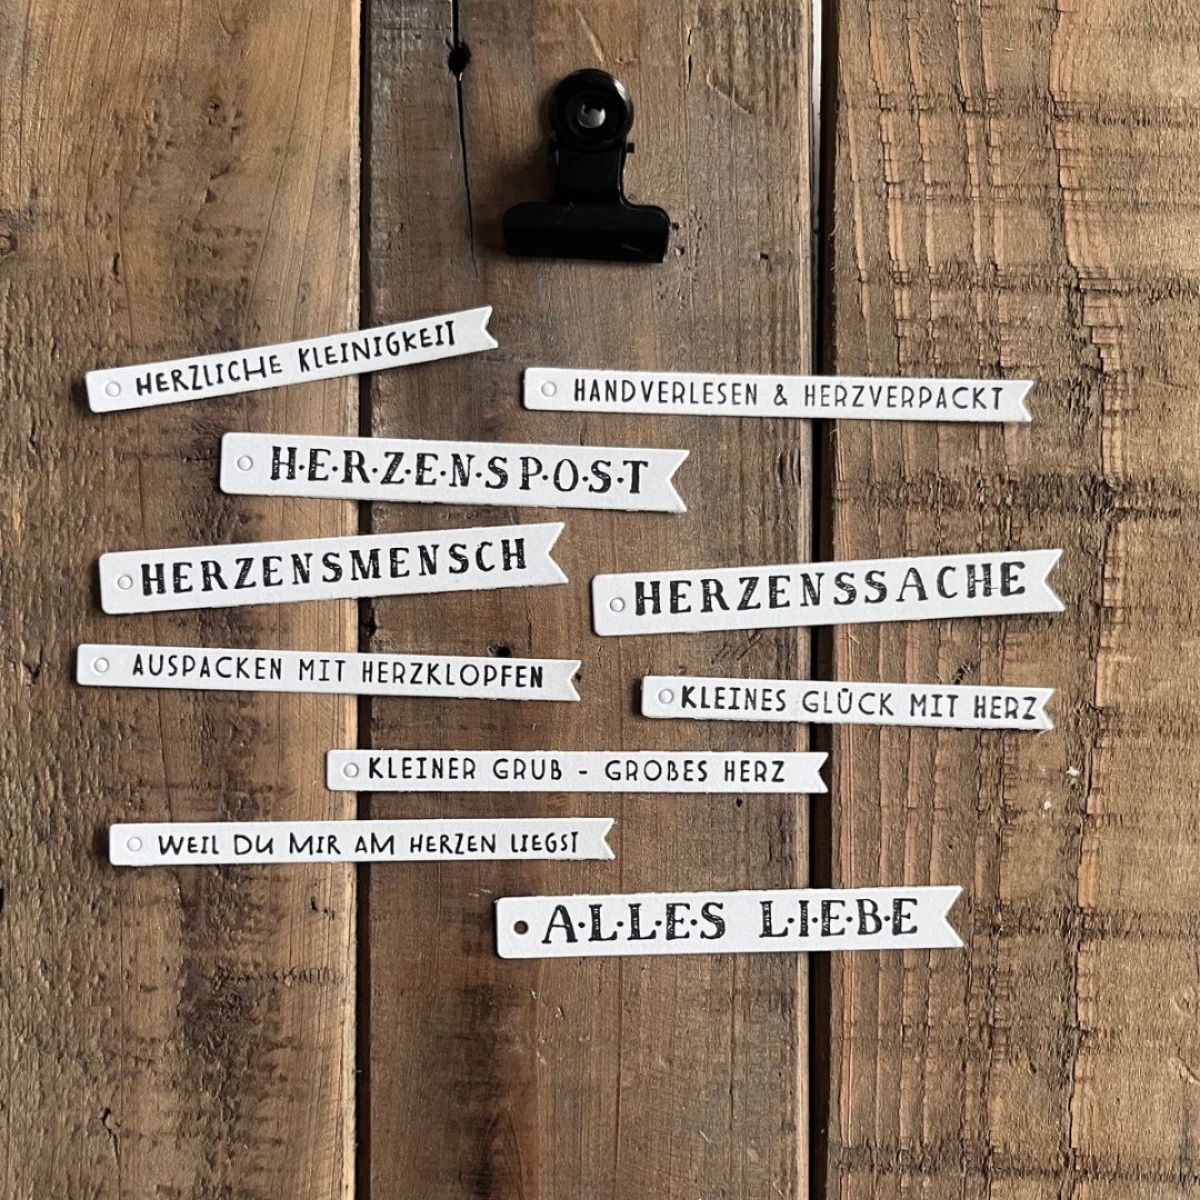 HERZLICHE KLEINIGKEIT
HANDVERLESEN & HERZVERPACKT
H·E·R·Z·E·N·S P·O·S·T
HERZENSMENSCH
HERZENSSACHE
AUSPACKEN MIT HERZKLOPFEN
KLEINES GLÜCK MIT HERZ
KLEINER GRUß - GROßES HERZ
WEIL DU MIR AM HERZEN LIEGST
A·L·L·E·S L·I·E·B·E